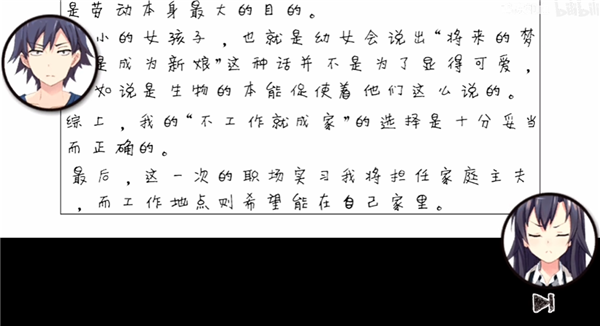 bilibili
是劳动本身最大的目的。
小的女孩子，也就是幼女会说出“将来的梦
是成为新娘”这种话并不是为了显得可爱，
如说是生物的本能促使着他们这么说的。
综上，我的“不工作就成家”的选择是十分妥当
而正确的。
最后，这一次的职场实习我将担任家庭主夫
，而工作地点则希望能在自己家里。